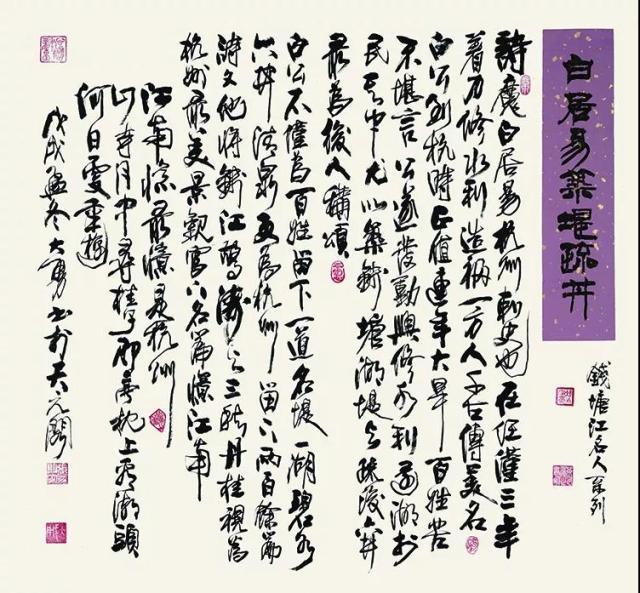 白居易築堤疏井
錢塘江名人系列
詩魔白居易杭州刺史也在任僅三年
着力修水利造福一方人千古傳美名
白公到杭時正值連年大旱百姓苦
不堪言公遂發動興修水利図湖於
民其中尤以築錢塘湖堤與疏浚六井
最為後人稱頌
白公不僅為百姓留下一道名堤一湖碧水
六井清泉更為杭州留下兩百餘篇
詩文他將錢江鶴濤與三秋丹桂視為
杭州最美景觀寫下名篇憶江南
江南憶最憶是杭州
山寺月中尋桂子郡亭枕上看潮頭
何日更重遊
戊戌孟冬大勇書於天元閣